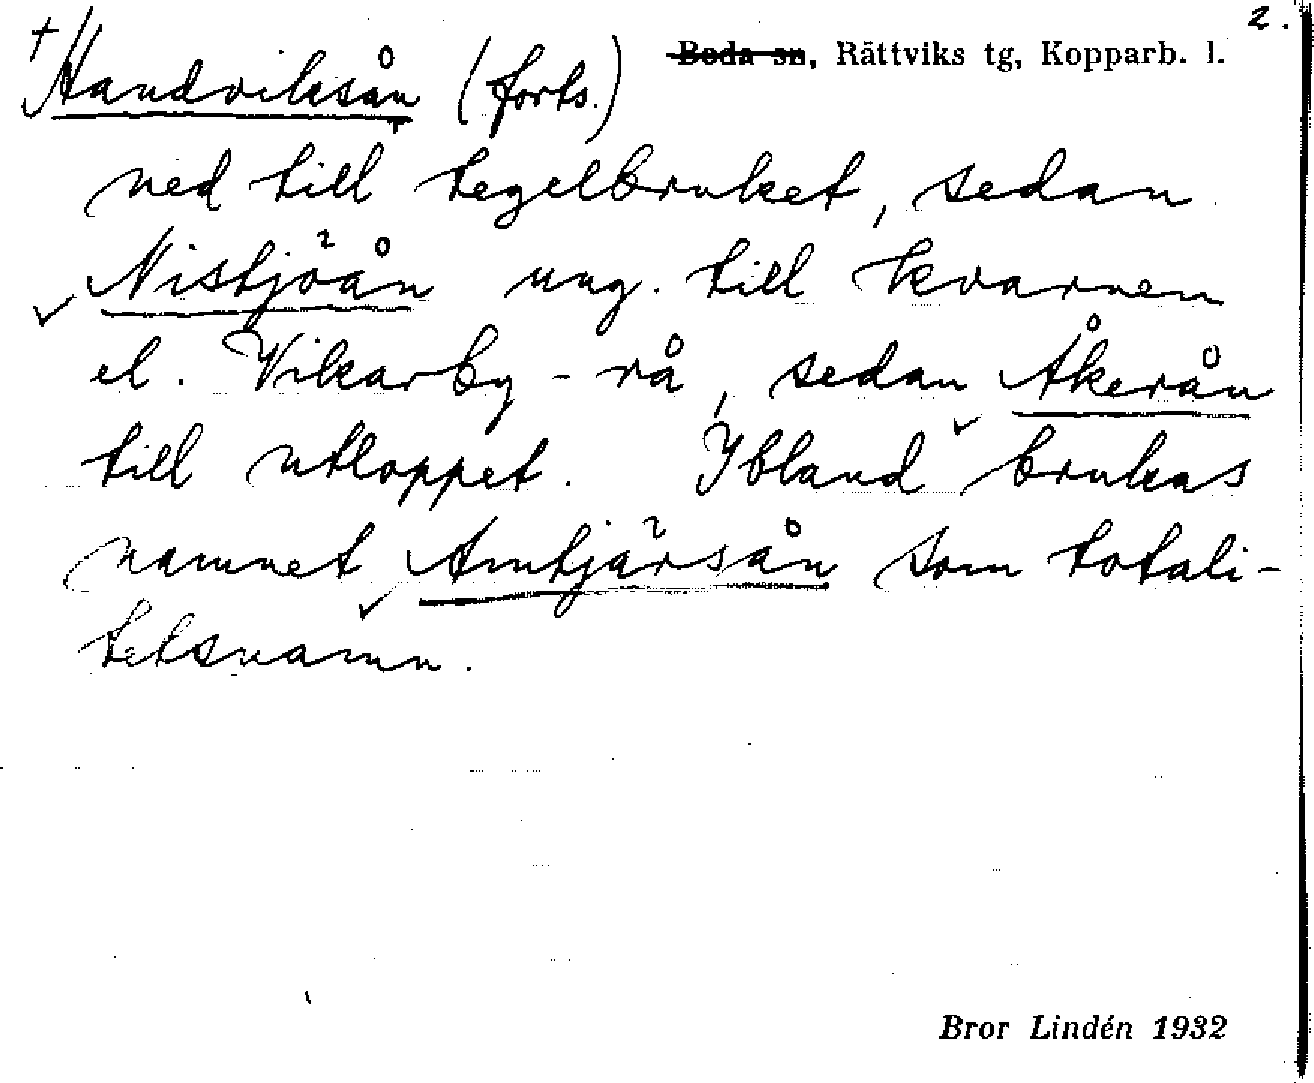 2.
+ Handviksån (forts.) Boda sn, Rättviks tg, Kopparb. l.
ned till tegelbruket, sedan
Nistjöån ung. till kvarnen
el. Vikarby-rå, sedan Åkerån
till utloppet. Ibland brukas
namnet Amtjärsån som totali-
tetsnamn.
Bror Lindén 1932